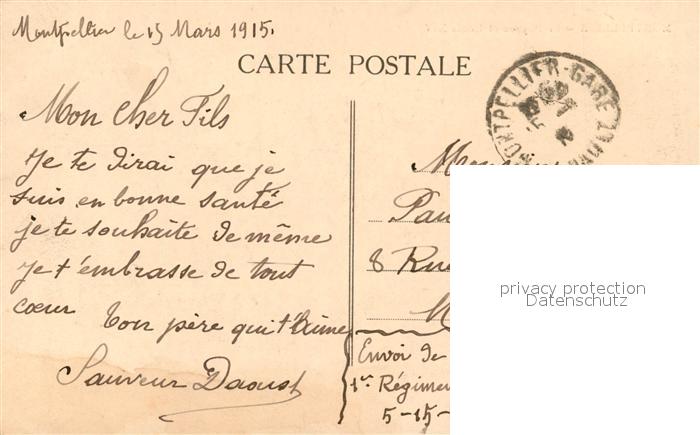 Montpellier le 15 Mars 1915.
CARTE POSTALE
MONTPELLIER-GARE
Mon cher Fils
Je te dirai que je
suis en bonne santé
je te souhaite de même
Je t'embrasse de tout
cœur
ton père qui t'aime
Sauveur Daoust
8 Rue
Envoi de
1er Régimen
5-15-
privacy protection
Datenschutz